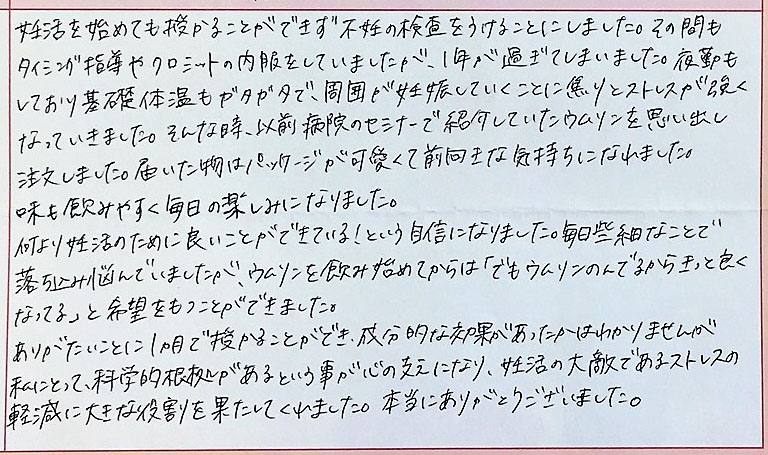 妊活を始めても授かることができず不妊の検査をうけることにしました。その間も
タイミング指導やクロミットの内服をしていましたが、1年が過ぎてしまいました。夜勤も
しており基礎体温もガタガタで、周囲が妊娠していくことに焦りとストレスが強く
なっていきました。そんな時、以前病院のセミナーで紹介していたウムリンを思い出し
注文しました。届いた物はパッケージが可愛くて前向きな気持ちになれました。
味も飲みやすく毎日の楽しみになりました。
何より妊活のために良いことができている!という自信になりました。毎日些細なことで
落ち込み悩んでいましたが、ウムリンを飲み始めてからは「でもウムリンのんでるからきっと良く
なってる」と希望をもつことができました。
ありがたいことに1ヵ月で授かることができ、成分的な効果があったかはわかりませんが
私にとって、科学的根拠があるという事が心の支えになり、妊活の大敵であるストレスの
軽減に大きな役割を果たしてくれました。本当にありがとうございました。